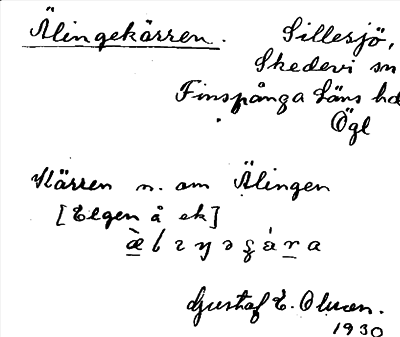 Älingekärren. Sillesjö,
Skedevi sn
Finspånga Läns hd
Ögl
Kärren n. om Älingen
[Elgen å ek]
Gustaf E. Olsson.
1930